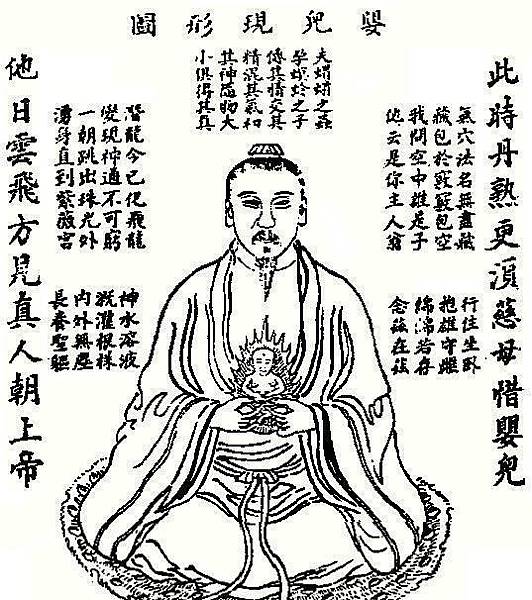 嬰兒現形圖
此時丹熟更須慈母惜嬰兒
氣穴法名無盡藏
藏包於竅竅包空
我問空中誰是子
他云是你主人翁
行住坐卧
抱雄守雌
綿綿若存
念茲在茲
夫之蟲
孕螟蛉之子
傳其情交其
精混其氣和
其神隨物大
小俱得其真
潛龍今已化飛龍
變現神通不可窮
一朝跳出珠光外
湧身直到紫薇宮
神水溶液
溉灌根株
內外無塵
長養聖軀
他日雲飛方見真人朝上帝